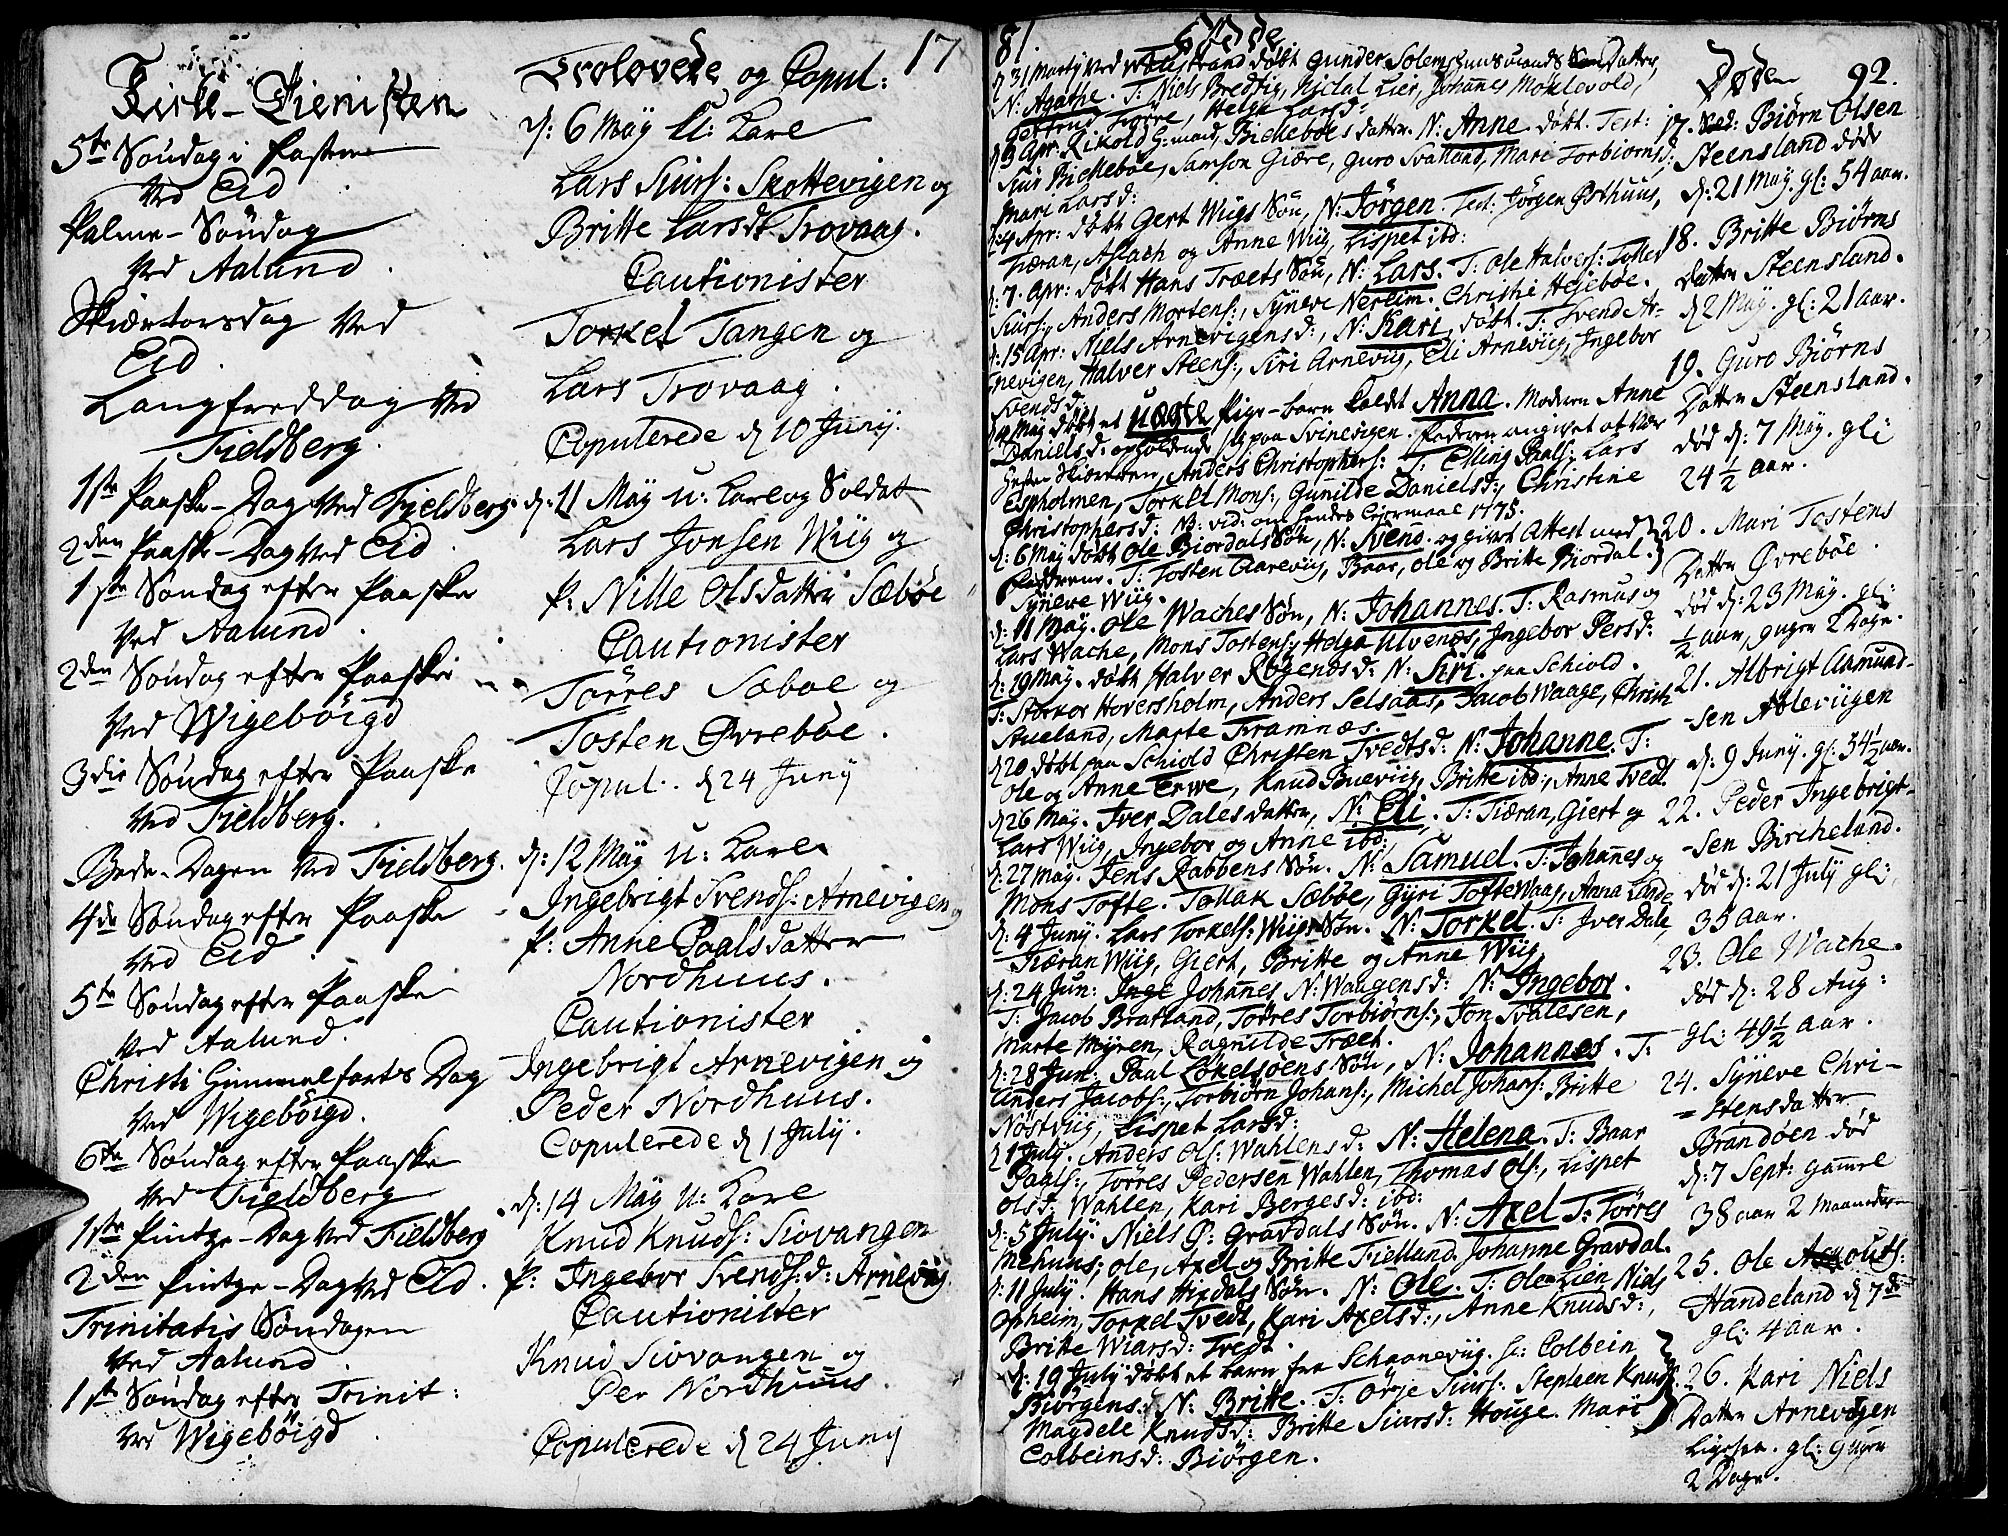 Kirke-Tienisten
5te Søndag i Fasten
ved Eid
Palme-Søndag
ved Aalund.
Skiærtorsdag ved
Eid.
Langfreddag ved
Fieldberg.
1ste Paaske-Dag ved Fieldberg.
2den Paaske-Dag ved Eid.
1ste Søndag efter Paaske
ved Aalund.
2den Søndag efter Paaske
ved Wigebøigd
3die Søndag efter Paaske
ved Fieldberg.
Bede-Dagen ved Fieldberg.
4de Søndag efter Paaske
ved Eid.
5te Søndag efter Paaske
ved Aalund.
Christi Himmelfarts Dag
ved Wigebøigd.
6te Søndag efter Paaske
ved Fieldberg
1ste Pintze-Dag ved Fieldberg
2den Pintze-Dag ved Eid.
Trinitatis Søndagen
ved Aalund.
1ste Søndag efter Trinit:
ved Wigebøigd.
Trolovede og Copul: 17
d: 6 Maÿ U: Karl
Lars Siurs: Skottevigen og
Britte Larsd: Trovaag.
Cautionister
Torkel Tangen og
Lars Trovaag.
Copulerede d 10 Junÿ.
d: 11 Maÿ U: Karl og Soldat
Lars Jonsen Wiig og
P: Nille Olsdatter Sæbøe
Cautionister
Torres Sæbøe og
Tosten Øvrebøe.
Copul. d 24 Junÿ
d: 12 Maÿ U: Karl
Ingebrigt Svends: Arnevigen og
P: Anne Paalsdatter
Nordhuus.
Cautionister
Ingebrigt Arnevigen og
Peder Nordhuus.
Copulerede d 1 Julÿ.
d: 14 Maÿ U: Karl
Knud Knuds: Siovangen
P: Ingebor Svends:d: Arnevig.
Cautionister
Knud Siovangen og
Per Nordhuus.
Copulerede d 24 Junÿ
81. Fødde
d 31 Martÿ ved døbt Gunder Datter,
N: Agathe. T: Niels Bredvig, Nicolai Lier, Johannes Møklevold,
Giertrud Tiørre, Helge Larsd:
d 3 Apr: Rikold Bickebøes datter. N: Anne døbt. Test:
Siur Bickebøe, Samson Giøre, Guro Svalland, Mari Torbiørnsd:
Mari Larsd:
d: 4 Apr: døbt Gert Wiigs Søn, N: Jørgen. Test: Jørgen Østhuus,
Tiæran, Aslach og Anne Wiig, Lispet ibd:
d: 7 Apr: døbt Hans Træets Søn, N: Lars. T: Ole Halvers: Tofte
Siurs:, Anders Mortens:, Sÿneve Nerlim. Christi Heiebøe.
d: 15 Apr: Niels Arnevigensd:, N: Kari, døbt. T: Svend Ar-
nevigen, Halver Steens:, Siri Arneviig, Eli Arneviig, Ingebor
Svendsd:
d 4 Maÿ døbt et uægte Pige-barn kaldt Anna. Moderen Anne
Danielsd: opholdende sig paa Svinevigen. Faderen angivet at være
Anders Christophers: T: Elling Paals: Lars
Espholmen, Torkel Mons:, Gunilde Danielsd:, Christine
Christophersd: NB: vid: om hendes 1775.
d: 6 Maÿ døbt Ole Biordals Søn, N: Svend. og givet Attest med
T: Tosten Aarevig, Baar, Ole og Britte Biordal.
Sÿneve Wiig.
d: 11 Maÿ. Ole Waches Søn, N: Johannes. T: Rasmus og
Lars Wache, Mons Tostens:, Helga Ulvenes, Ingebor Persd:
d: 19 Maÿ. døbt Halver Røgendsd: N: Siri. paa Schiold.
T: Storkor Hoversholm, Anders Selsaas, Jacob Waage, Christi
Stueland, Marte Framnæs.
d 20 døbt paa Schiold Christen Tvedtsd: N: Johanne. T:
Ole og Anne Erve, Knud Bueviig, Britte ibd:, Anne Tvedt
d 26 Maÿ. Iver Dales datter, N: Eli. T: Tiæran, Giert og
Lars Wiig, Ingebor og Anne ibd:
d: 27 Maÿ. Jens Rabbens Søn. N: Samuel. T: Johannes og
Mons Tofte. Tollak Sæbøe, Gÿri Toftewaag, Anna Lande
d: 4 Junÿ. Lars Torkels: Wiigs Søn. N: Torkel. T: Iver Dale,
Tiæran Wiig, Giert, Britte og Anne Wiig.
d: 24 Jun: Johannes N:Waagensd: N: Ingebor.
T: Jacob Bratland, Torres Torbiørns:, Jon Svalesen,
Marte Mÿren, Ragnilde Træet.
d: 28 Jun: Paal Løkelsøens Søn, N: Johannes. T:
Anders Jacobs:, Torbiørn Johans:, Michel Johans: Britte
Nøstviig, Lispet Larsd:
d 1 Julÿ. Anders Ols: Wahlensd: N: Helena. T: Baar
Paals:, Torres Pedersen Wahlen, Thomas Ols:, Lispet
Olsd: Wahlen, Kari Bergesd: ibd:
d: 5 Julÿ. Niels P: Gravdals Søn. N: Axel. T: Torres
Mehuus, Ole, Axel og Britte Fielland. Johanne Gravdal.
d: 11 Julÿ. Hans Hixdals Søn. N: Ole. T: Ole Lien, Niels
Opheim, Torkel Tvedt, Kari Axelsd:, Anne Knudsd:,
Britte Wiarsd: Tvedt.
d: 19 Julÿ døbt et barn fra Schaaneviig. Colbein
Biørgens: N: Britte. T: Ørje Siurs: Stephen Knuds:
Magdele Knudsd: Britte Siursd: Houge. Mari
Colbeinsd: Biørgen.
Døde 92.
17. Biørn Olsen
Steensland døde
d: 21 Maÿ. gl: 54 aar.
18. Britte Biørns
datter Steensland.
d 2 Maÿ. gl: 21 aar.
19. Guro Biørns
Datter Steensland.
død d: 7 Maÿ. gl:
24 ½ aar.
20. Mari Tostens
Datter Øvrebøe.
død d: 23 Maÿ. gl:
½ aar, 9 uger 2 Dage.
21. Albrigt Aamund-
sen Ablevigen
d: 9 Junÿ. gl: 34½ aar.
22. Peder Ingebrigt-
sen Bircheland.
død d: 21 Julÿ gl:
35 aar.
23. Ole Wache.
død d: 28 Aug:
gl: 49½ aar.
24. Sÿneve Chri-
stensdatter
Brandøen død
d: 7 Sept: gammel
38 aar 2 Maaneder
25. Ole
Handeland d 7de
gl: 4 aar.
26. Kari Niels
Datter Arnevigen
gl: 9 uger
2 Dage.